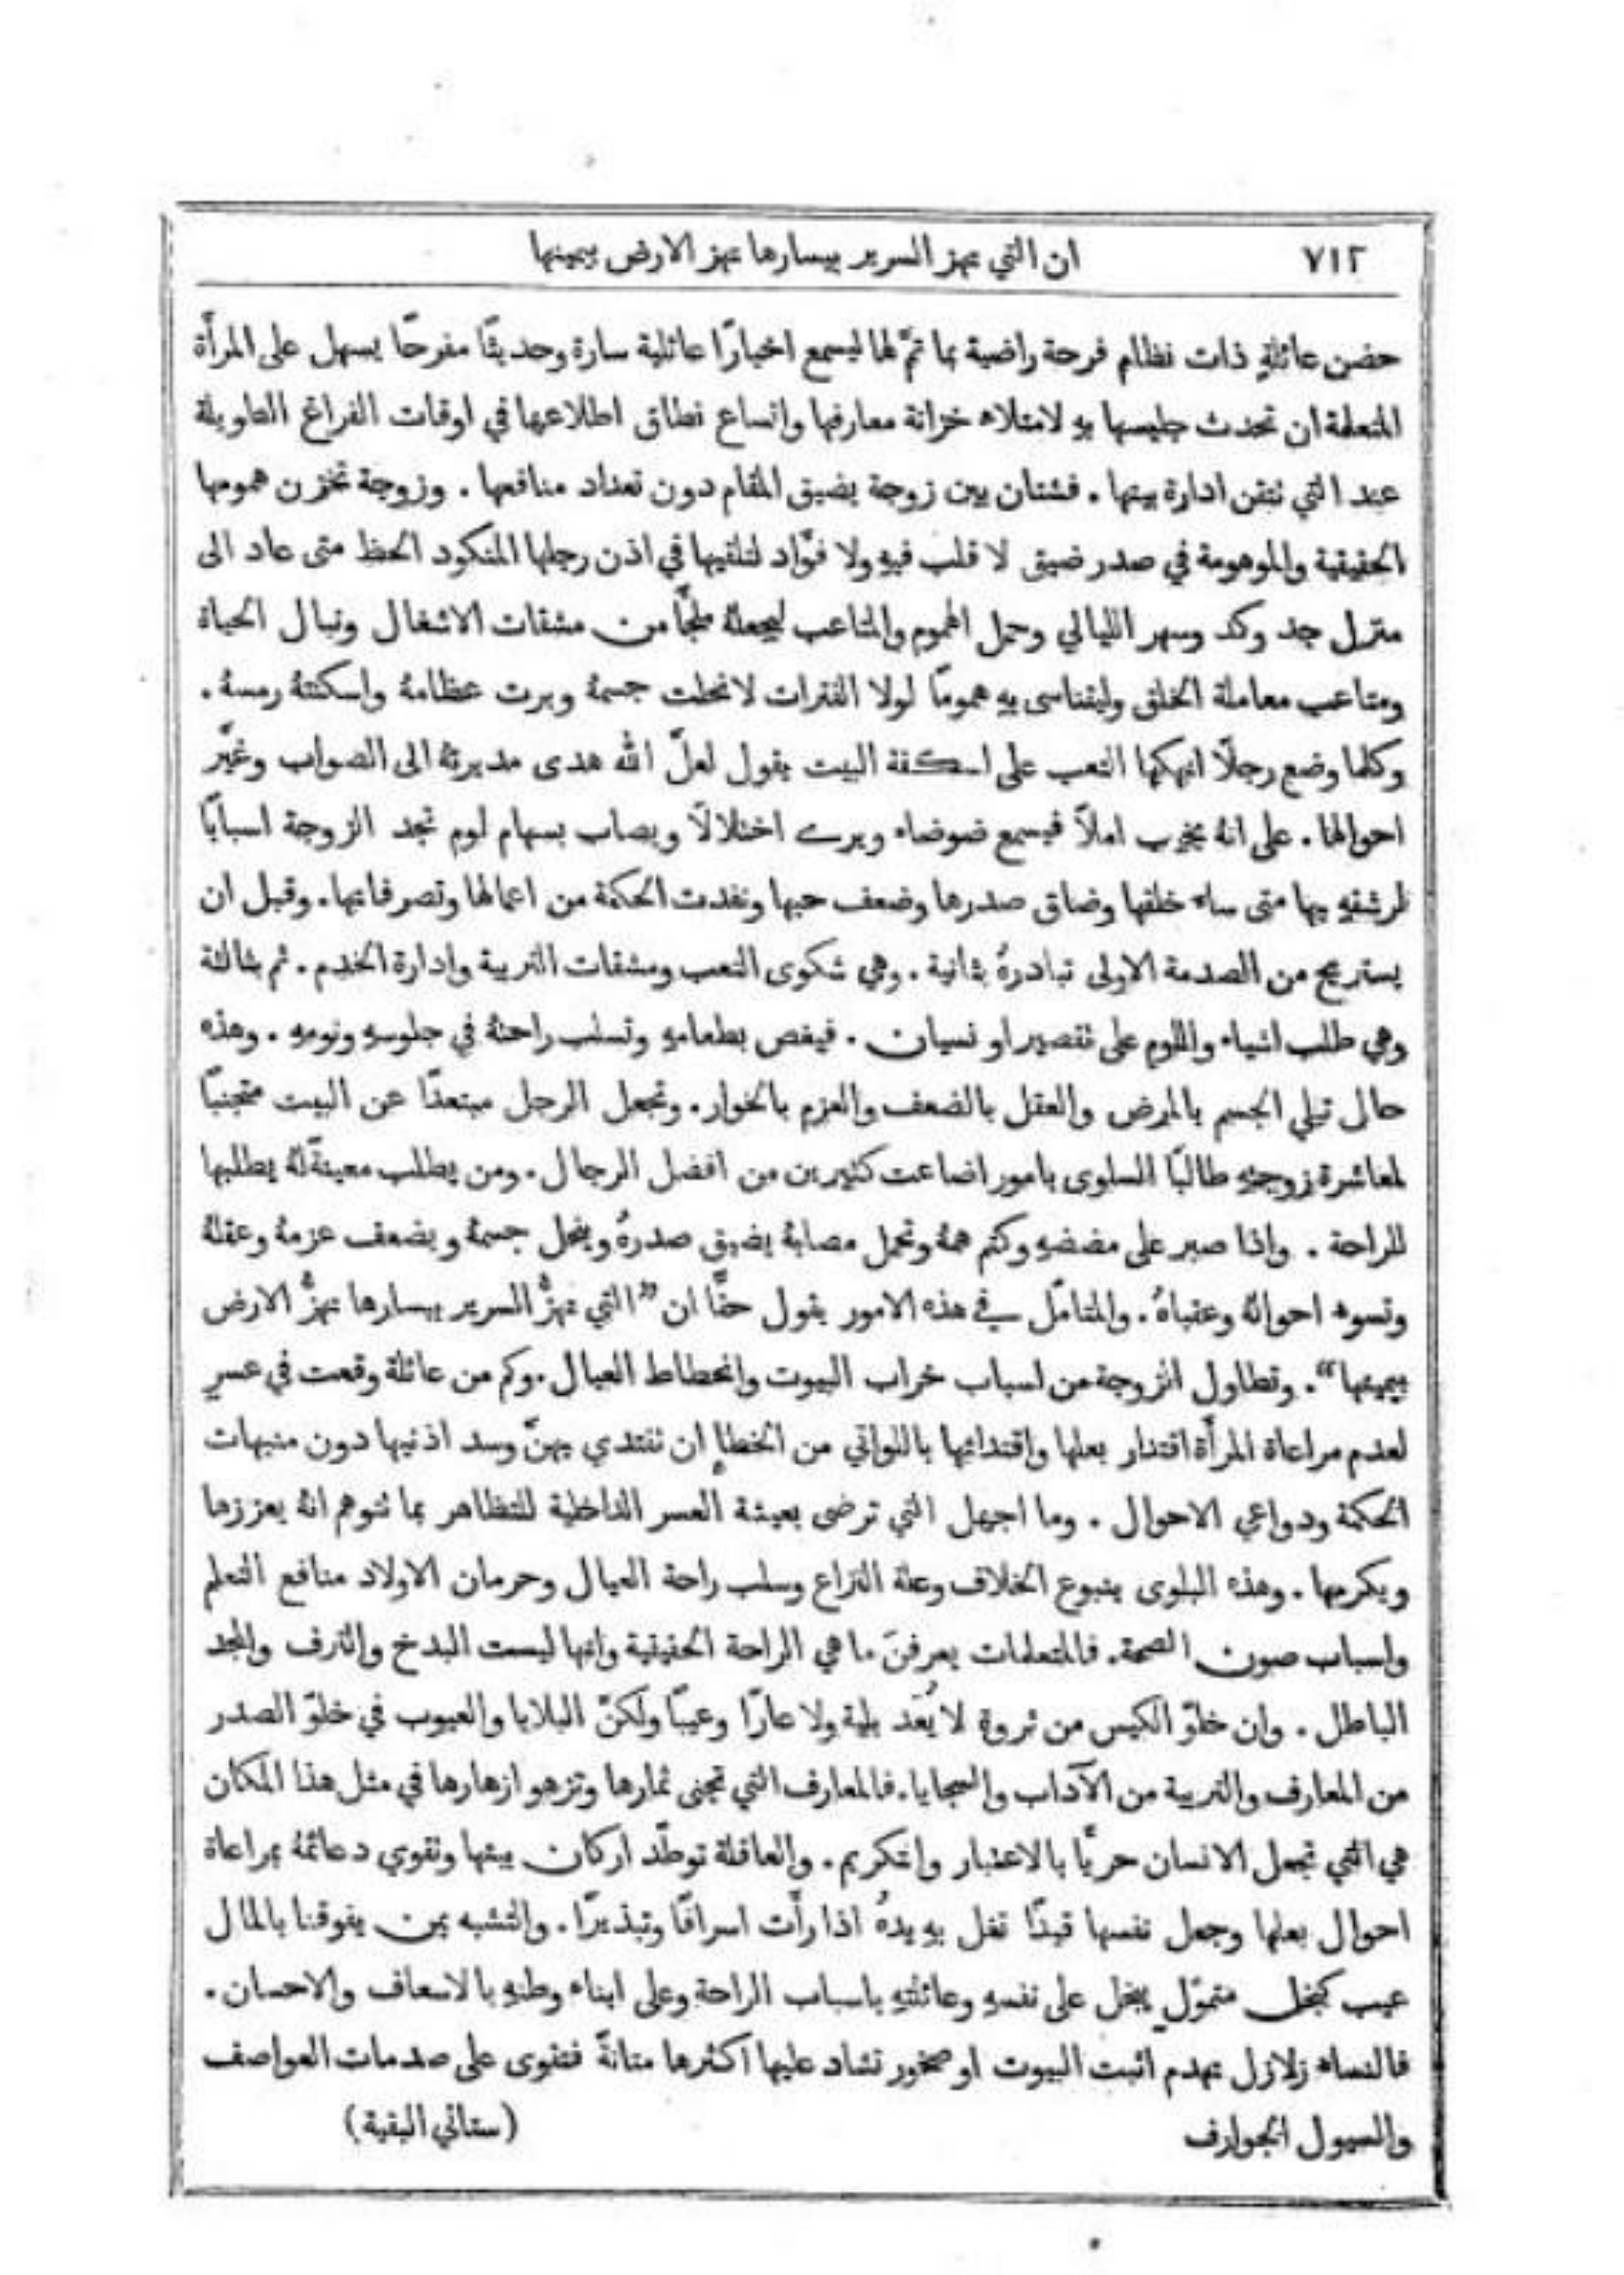 ٧١٢ ان التي تهز السرير بيسارها تهز الارض بيمينها
حضن عائلةٍ ذات نظام فرحة راضية بما تمَّ لها ليسمع اخبارًا عائلية سارة وحديثًا مفرحًا يسهل على المرأة
المتعلمة ان تحدث جليسها بهِ لامتلاء خزانة معارفها واتساع نطاق اطلاعها في اوقات الفراغ الطويلة
عند التي تتقن ادارة بيتها . فشتان بين زوجة يضيق المقام دون تعداد منافعها . وزوجة تخزن همومها
الحقيقية والموهومة في صدر ضيق لا قلب فيهِ ولا فؤاد لتلقيها في اذن رجلها المنكود الحظ متى عاد الى
منزل جد وكد وسهر الليالي وحمل الهموم والمتاعب ليجعلهُ ملجأً من مشقات الاشغال ونبال الحياة
ومتاعب معاملة الخلق وليتناسى بهِ همومًا لولا الفترات لانحلت جسمهُ وبرت عظامهُ واسكنتهُ رمسهُ .
وكلما وضع رجلًا انهكها التعب على اسكفة البيت يقول لعلَّ الله هدى مديرتهُ الى الصواب وغيَّر
احوالها . على انهُ يخيب املاً فيسمع ضوضاء ويرى اختلالاً ويصاب بسهام لوم تجد الزوجة اسبابًا
لرشقهِ بها متى ساء خلقها وضاق صدرها وضعف حبها ونفدت الحكمة من اعمالها وتصرفاتها. وقبل ان
يستريح من الصدمة الاولى تبادرهُ بثانية . وهي شكوى التعب ومشقات التربية وادارة الخدم . ثم بثالثة
وهي طلب اشياء واللوم على تقصير او نسيان . فيغص بطعامهِ وتسلب راحتهُ في جلوسهِ ونومهِ . وهذه
حال تبلي الجسم بالمرض والعقل بالضعف والعزم بالخوار. وتجعل الرجل مبتعدًا عن البيت متجنبًا
لمعاشرة زوجتهِ طالبًا السلوى بامور اضاعت كثيرين من افضل الرجال . ومن يطلب معينةً لهُ يطلبها
للراحة . واذا صبر على مضضهِ وكتم همهُ وتحمل مصابهُ يضيق صدرهُ وينحل جسمهُ ويضعف عزمهُ وعقلهُ
وتسوء احوالهُ وعقباهُ . والمتامّل في هذه الامور يقول حقًّا ان ”التي تهزُّ السرير بيسارها تهزُّ الارض
بيمينها“ . وتطاول الزوجة من اسباب خراب البيوت وانحطاط العيال . وكم من عائلة وقعت في عسرٍ
لعدم مراعاة المرأة اقتدار بعلها واقتدائها باللواتي من الخطإِ ان تقتدي بهنَّ وسد اذنيها دون منبهات
الحكمة ودواعي الاحوال . وما اجهل التي ترضى بعيشة العسر الداخلية للتظاهر بما تتوهم انهُ يعززها
ويكرمها . وهذه البلوى ينبوع الخلاف وعلة النزاع وسلب راحة العيال وحرمان الاولاد منافع التعلم
واسباب صون الصحة. فالمتعلمات يعرفنَ ما هي الراحة الحقيقية وانها ليست البذخ والترف والمجد
الباطل . وان خلوّ الكيس من ثروةٍ لا يُعَد بلية ولا عارًا وعيبًا ولكنَّ البلايا والعيوب في خلوّ الصدر
من المعارف والتربية من الآداب والسجايا. فالمعارف التي تجنى ثمارها وتزهو ازهارها في مثل هذا المكان
هي التي تجعل الانسان حريًّا بالاعتبار والتكريم . والعاقلة توطّد اركان بيتها وتقوي دعائمهُ بمراعاة
احوال بعلها وجعل نفسها قيدًا تغل بهِ يدهُ اذا رأَت اسرافًا وتبذيرًا . والتشبه بمن يفوقنا بالمال
عيب كبخل متموّل يبخل على نفسهِ وعائلتهِ باسباب الراحة وعلى ابناء وطنهِ بالاسعاف والاحسان .
فالنساء زلازل تهدم اثبت البيوت او صخور تشاد عليها اكثرها متانةً فتقوى على صدمات العواصف
والسيول الجوارف (ستاتي البقية)